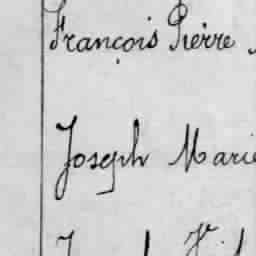 François Pierre
Joseph Marie